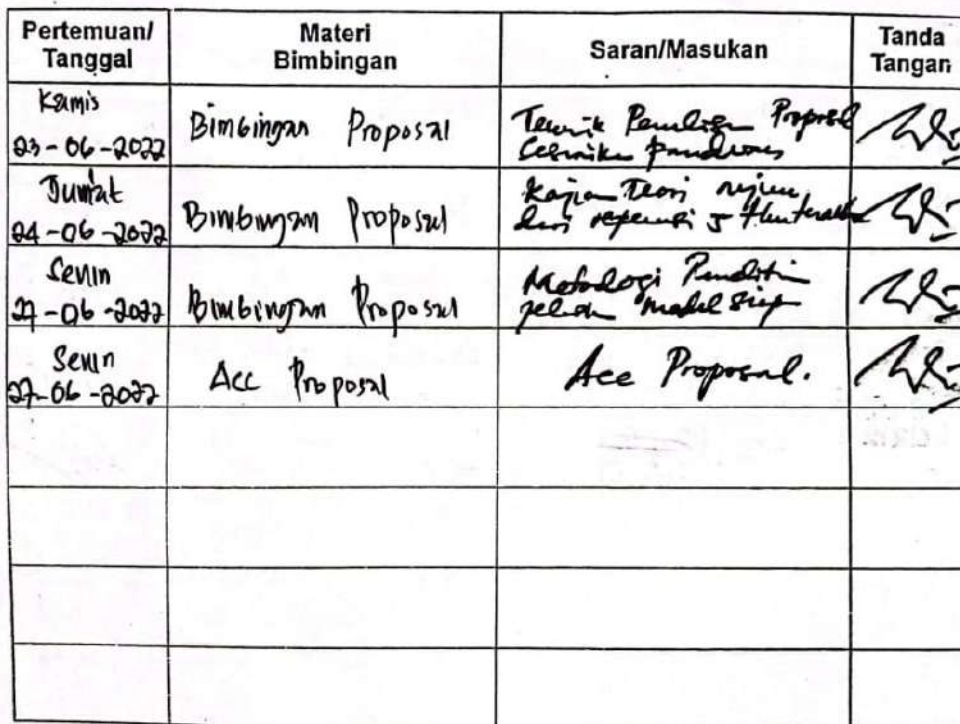 Pertemuan/ Tanggal
Materi Bimbingan
Saran/Masukan
Tanda Tangan
Kamis
23-06-2022
Bimbingan Proposal
Teknik Penulisan Proposal
Sesuaikan panduan
Jum'at
24-06-2022
Bimbingan Proposal
Kajian Teori
dari
Senin
27-06-2022
Bimbingan Proposal
Metodologi
Senin
27-06-2022
Acc Proposal
Acc Proposal.